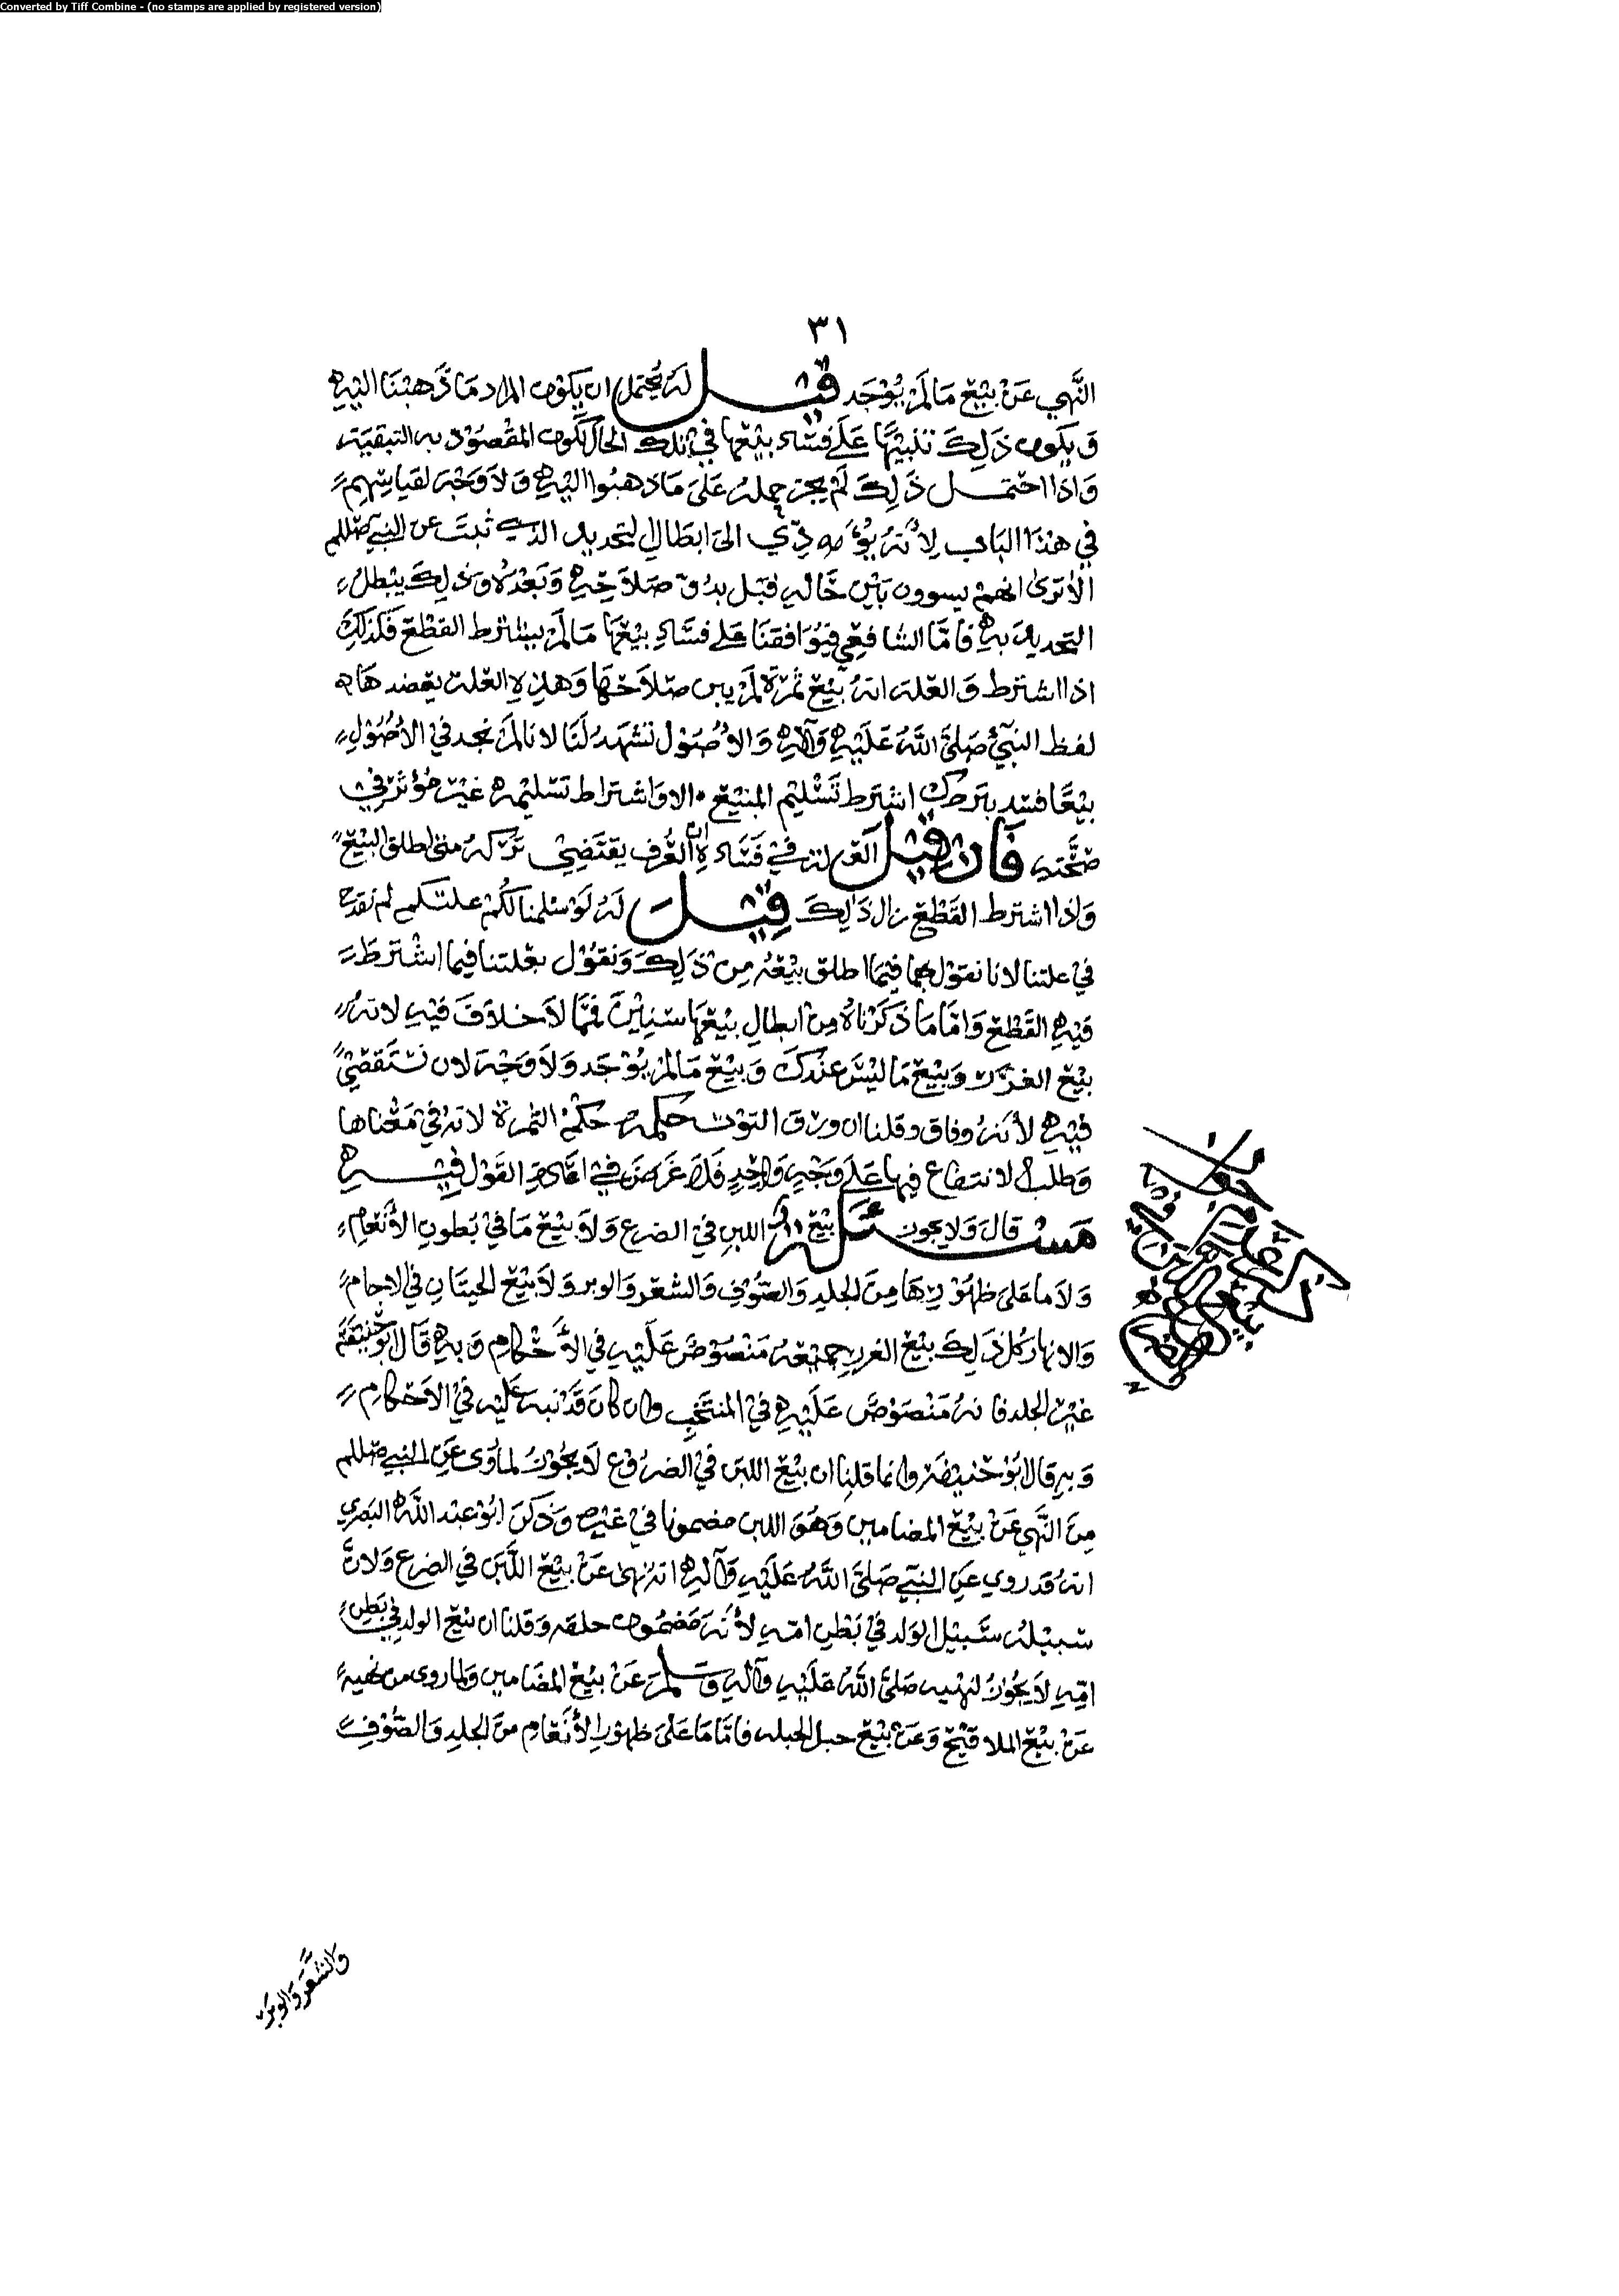 Converted by Tiff Combine - (no stamps are applied by registered version)
٣١
النَّهي عَنْ بَيْع مَا لَمْ يُوْجَد قيل لَهُ يُحتمل ان يَكَوْن المراد مَا ذَهبْنَا اليْهِ
وَ يكون ذَلِكَ تنبيْهًا عَلَى فسَاد بيْعهَا في تلك الحال لكون المقصُوْد به التبقية
وَاذا احتمل ذَلِكَ لَمْ يجز حمله عَلى مَا ذهبُوا اليْهِ وَلاَ وَجْهَ لقياسِهم
في هَذا الباب لأنهُ يُؤَدِّي الى ابطَالِ لتحديد الذي ثبتَ عن النبي صللم
الا ترىٰ انهمْ يسوون بَيْن حَاله قبْل بدُوّ صَلاَحِهِ وَبَعْدهُ وَذلِكَ يبْطل
التحديد بهِ فامَّا الشافعي فيُوَافقنَا عَلى فسَادِ بيْعهَا مَا لَمْ يشترط القطْع فَكَذلِكَ
اذا اشترط وَالعلة انهُ بَيْع ثمْرَة لَمْ يبن صَلاَحهَا وَهَذِهِ العلة يعضدهَا
لفظ النبيّ صَلىَّ اللَّهُ عَلَيْهِ وَآلِهِ وَالأصُوْل تشْهَدُ لَنَا لانا لَمْ نجد في الأصُوْلِ
بيْعًا فسَد بترك اشترط تَسْليْم المبيْع الا وَاشتراط تسْليْمه غيْر مُؤثّر في
صحَّته فَان قيل العلة في فسَاده ان العُرف يقتَضِيْ تَرْكهُ متى اطلق البيْع
وَاذا اشترط القَطْع زال ذَالِكَ قِيْل لَهُ لَوْ سَلمنا لكُمْ علتكم لم تقدح
فيْ علتنا لانا نقوْل بها فيْمَا اطلق بيْعُه مِنْ ذَلِكَ وَنقوْل بعْلتنا فيما اشْترط
فيْهِ القَطْع وَامَّا مَا ذَكَرْنَاهُ مِنْ ابطال بيْعهَا سنيْنَ فممَّا لاَ خلاَفَ فيْهِ لانهُ
بيْع الغرر وَبَيْع مَا ليْسَ عنْدَكَ وَبيْع مَا لَمْ يُوْجَد وَلاَ وَجْهَ لان نستَقصِيَ
فيْهِ لأنهُ وفاق وقلنا ان ورق التوْت حكمه حكمُ الثمرة لانهُ فيْ مَعْنَاها
وَطلب الانتفاع فيها عَلى وَجْهٍ وَاحِدٍ فَلاَ غَرَضَ في اعَادةِ القَوْل فيْهِ
مَسْئلة قالَ وَلا يجوز بيْع اللبن في الضرع وَلاَ بيْعُ مَا فيْ بُطونِ الأنعَامِ
وَلاَ مَا عَلى ظهُوْرِهَا مِنَ الجلدِ وَالصُّوْفِ وَالشعَر وَالوبر وَلاَ بَيْع الحيتَان في الاجَام
وَالانهار كل ذَلِكَ بيْع الغرر جميْعهُ مَنْصُوْصٌ عَلَيْهِ في الأحْكام وَبهِ قَالَ ابوْ حَنيْفة
غيْر الجلد فانهُ مَنْصُوْصٌ عَلَيْهِ في المنتخَب وان كانَ قدْ نبه عَليْه فيْ الأحكام
وَبه قالَ ابُوْ حنيفة وانما قلنا ان بَيْعَ اللبَن فيْ الضرُوْع لاَ يجُوْز لما رُوى عَنِ النبي صللم
مِنَ النَّهي عَنْ بيْعِ المضامين وَهوَ اللبن مضمونا في غيْره وَذكَر ابُوْ عبْد اللَّه البَصري
انهُ قد روي عَنِ النبي صَلىَّ اللَّهُ عَلَيْهِ وَآلِهِ انهُ نهى عَنْ بيْعِ اللَّبَن في الضرع وَلانَّ
سبيْلهُ سَبيْل الوَلد فيْ بَطْن امّهِ لأنهَ مَضمُون خلقه وَقلنا ان بيْع الولد في بَطن
امّهِ لاَ يجُوْز لنهيه صَلىَّ اللَّهُ عَلَيْهِ وَآلِهِ وَسَلمَ عَنْ بيْع المضَامين وَلما روى من نهيه
عَنْ بيْع الملاقيْح وَعَنْ بيْع حبل الحبله فامَّا مَا عَلى ظهوْرِ الأنعَامِ منَ الجلدِ وَالصُّوْفِ
وَالشَّعَر وَالوبَر